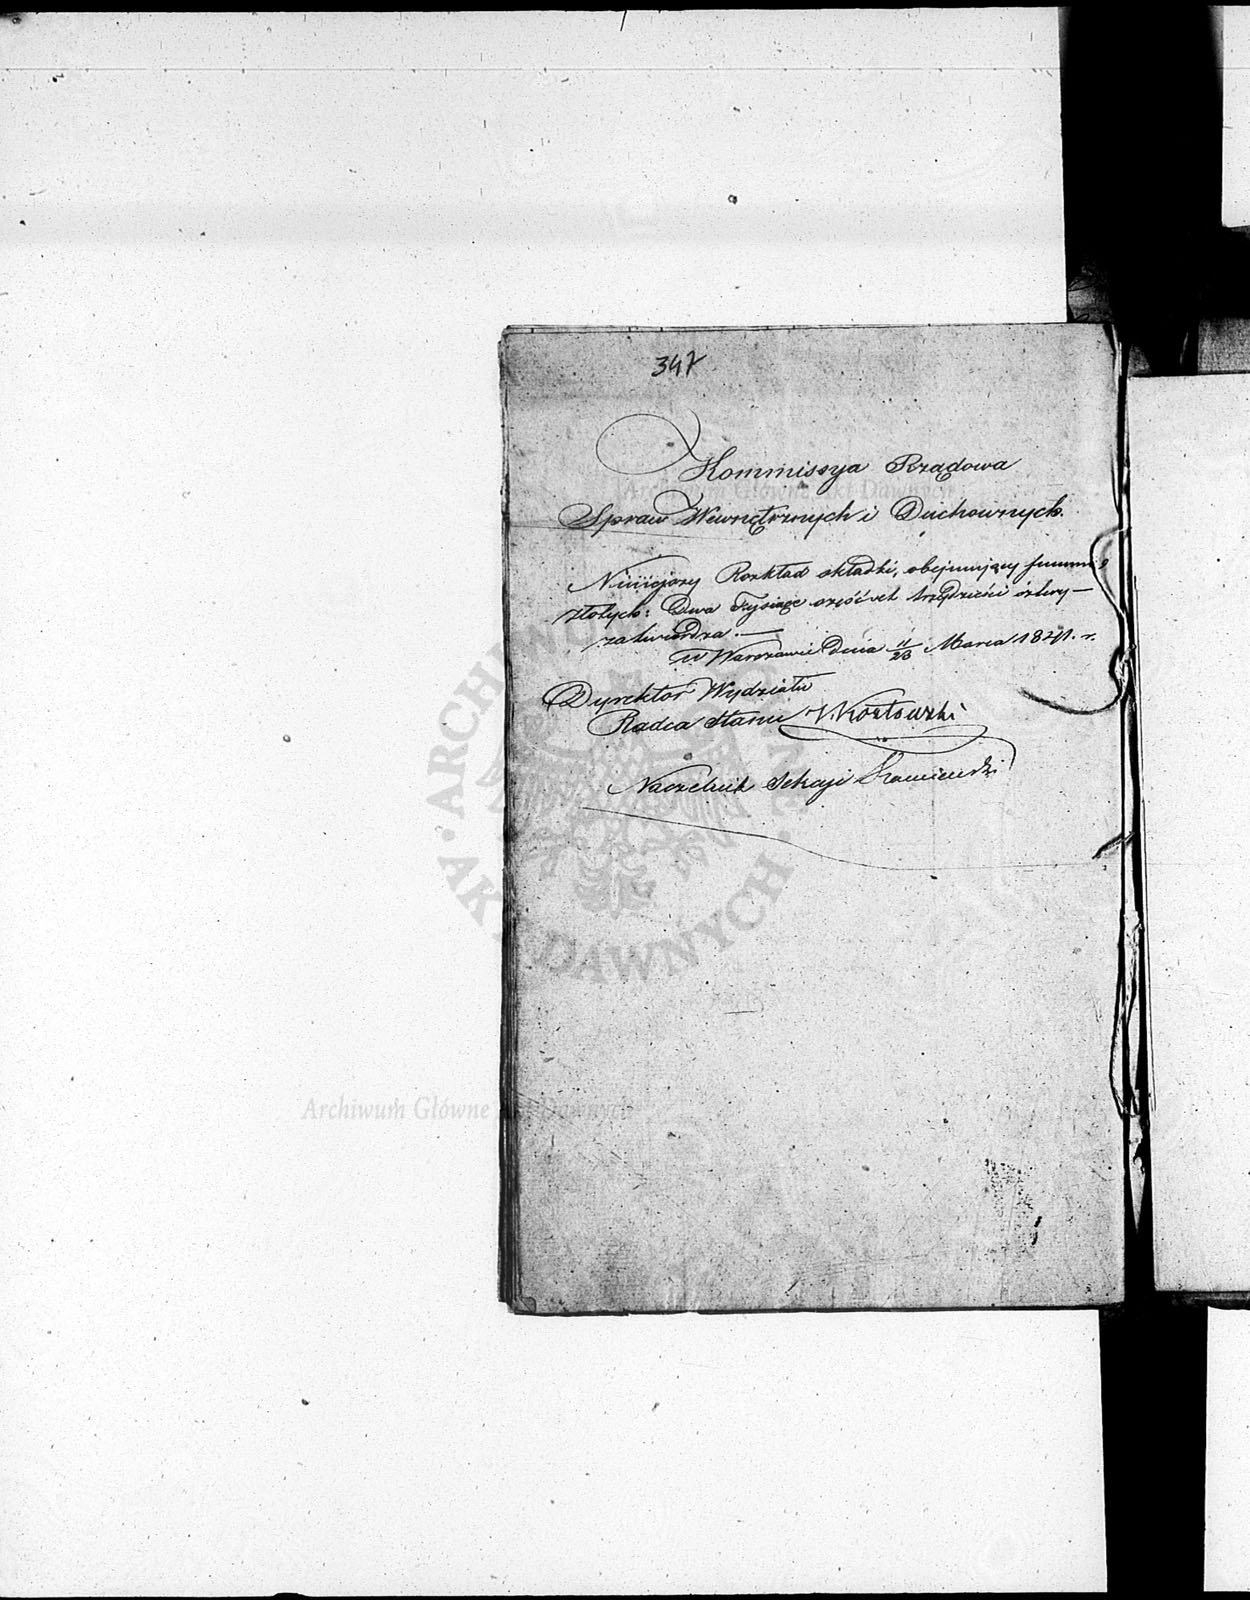 347
Kommissya Rządowa
Spraw Wewnętrznych i Duchownych.
Niniejszy Rozkład składki, obejmujący summę
złotych: Dwa Tysiące sześćset trzydzieści cztery —
zatwierdza. —
w Warszawie dnia 11/23 Marca 1841. r.
Dyrektor Wydziału
Radca Stanu Kozłowski
Naczelnik Sekcyi Kamieński
Archiwum Główne Akt Dawnych
ARCHIWUM GŁÓWNE AKT DAWNYCH
Archiwum Główne Akt Dawnych